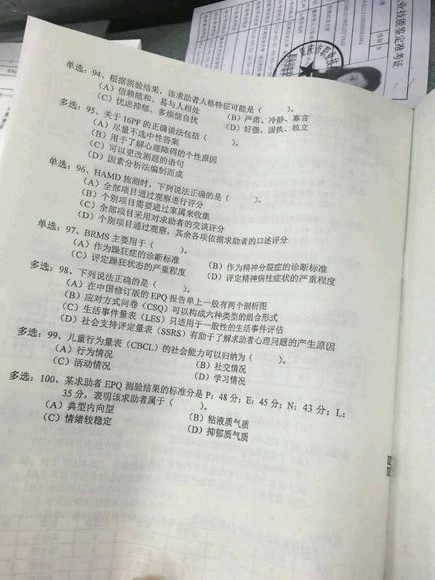 业技能鉴定准考证
单选：94、根据测验结果，该求助者人格特征可能是（　　）。
（A）信赖随和、易与人相处　（B）严肃、冷静、寡言
（C）忧虑抑郁、多烦恼自扰　（D）好强、固执、独立
多选：95、关于16PF的正确说法包括（　　）。
（A）尽量不选中性答案
（B）用于了解心理障碍的个性原因
（C）可以更改测题的语句
（D）因素分析法编制而成
单选：96、HAMD施测时，下列说法正确的是（　　）。
（A）全部项目通过观察进行评分
（B）个别项目需要通过家属来收集
（C）全部项目采用对求助者的交谈评分
（D）个别项目通过观察，其余各项依据求助者的口述评分
单选：97、BRMS主要用于（　　）。
（A）作为躁狂症的诊断标准　（B）作为精神分裂症的诊断标准
（C）评定躁狂状态的严重程度　（D）评定精神病性症状的严重程度
多选：98、下列说法正确的是（　　）。
（A）在中国修订版的EPQ报告单上一般有两个剖析图
（B）应对方式问卷（CSQ）可以构成六种类型的组合形式
（C）生活事件量表（LES）只适用于一般性的生活事件评估
（D）社会支持评定量表（SSRS）有助于了解求助者心理问题的产生原因
多选：99、儿童行为量表（CBCL）的社会能力可以归纳为（　　）。
（A）行为情况　（B）社交情况
（C）活动情况　（D）学习情况
多选：100、某求助者EPQ测验结果的标准分是P：48分；E：45分；N：43分；L：
35分，表明该求助者属于（　　）。
（A）典型内向型　（B）粘液质气质
（C）情绪较稳定　（D）抑郁质气质